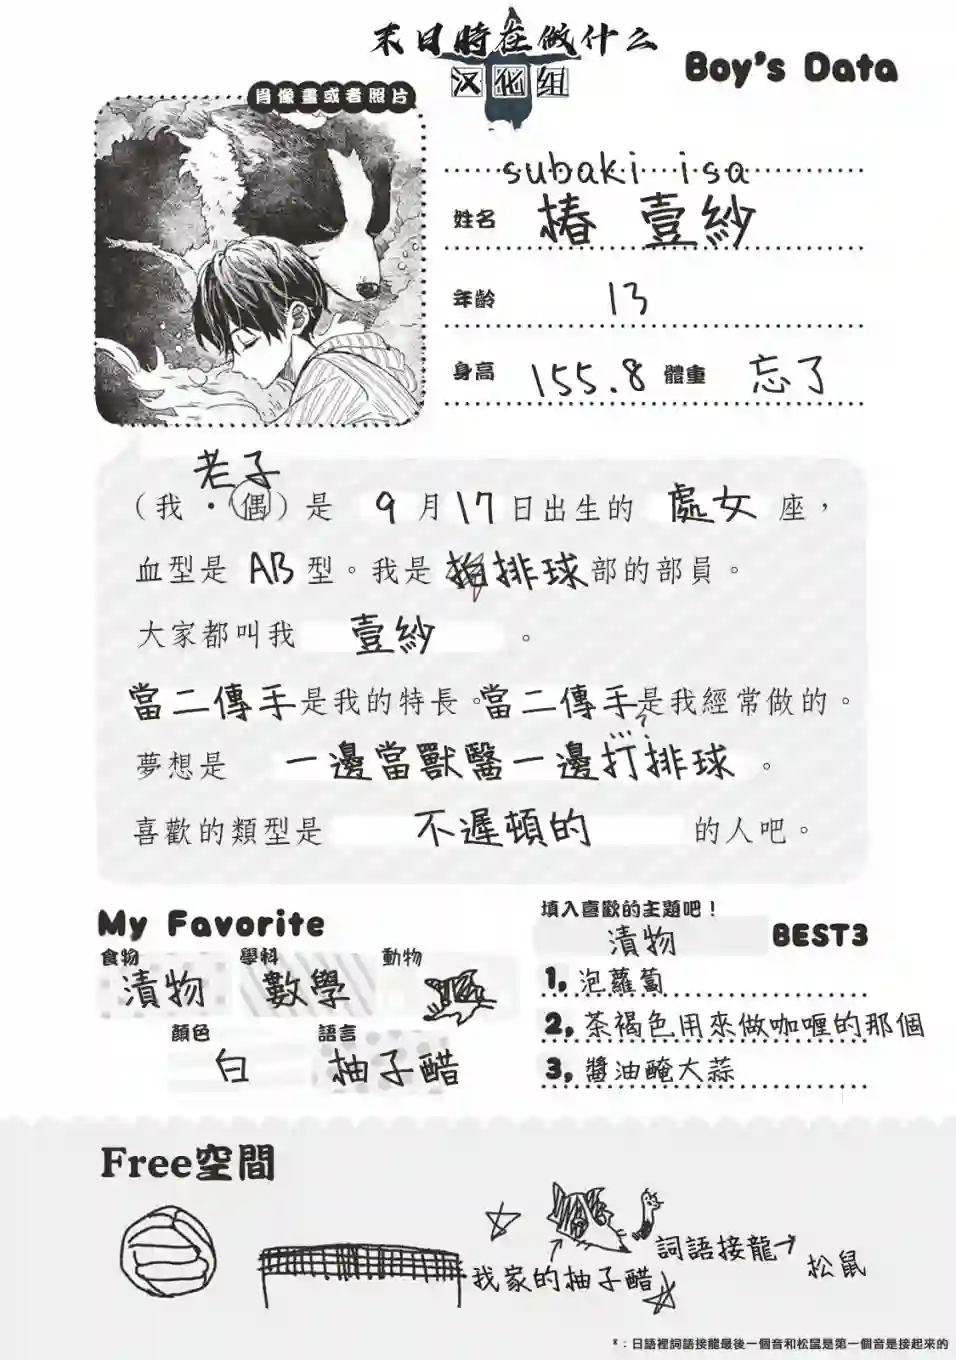 末日時在做什么
汉化组
Boy's Data
肖像畫或者照片
subaki isa
姓名 椿 壹紗
年齡 13
身高 155.8 體重 忘了
老子
(我・偶)是 9月17日出生的 處女 座，
血型是 AB 型。我是 排球部的部員。
大家都叫我 壹紗 。
當二傳手是我的特長。當二傳手是我經常做的。
夢想是 一邊當獸醫一邊打排球 。
喜歡的類型是 不遲頓的 的人吧。
My Favorite
食物 漬物
學科 數學
動物
顏色 白
語言 柚子醋
填入喜歡的主題吧！
漬物 BEST3
1, 泡蘿蔔
2, 茶褐色用來做咖喱的那個
3, 醬油醃大蒜
Free空間
詞語接龍→
松鼠
我家的柚子醋
*：日語裡詞語接龍最後一個音和松鼠是第一個音是接起來的